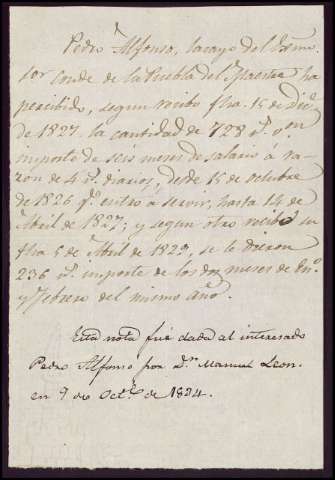 Pedro Alfonso, lacayo del Exmo
Sor Conde de la Puebla del Maestre ha
percibido, segun recibo fha. 15 de Dice
de 1827. la cantidad de 728 rs. von
importe de seis meses de salario á ra-
zon de 4 rs. diarios, desde 15 de octubre
de 1826 qe. entró á servir, hasta 14 de
Abril de 1827; y segun otro recibo su
fha 5 de Abril de 1829, se le dieron
236 rs. importe de los dos meses de Eno.
y Febrero del mismo año.
Esta nota fué dada al interesado
Pedro Alfonso por Dn. Manuel Leon.
en 9 de Octe. de 1834.